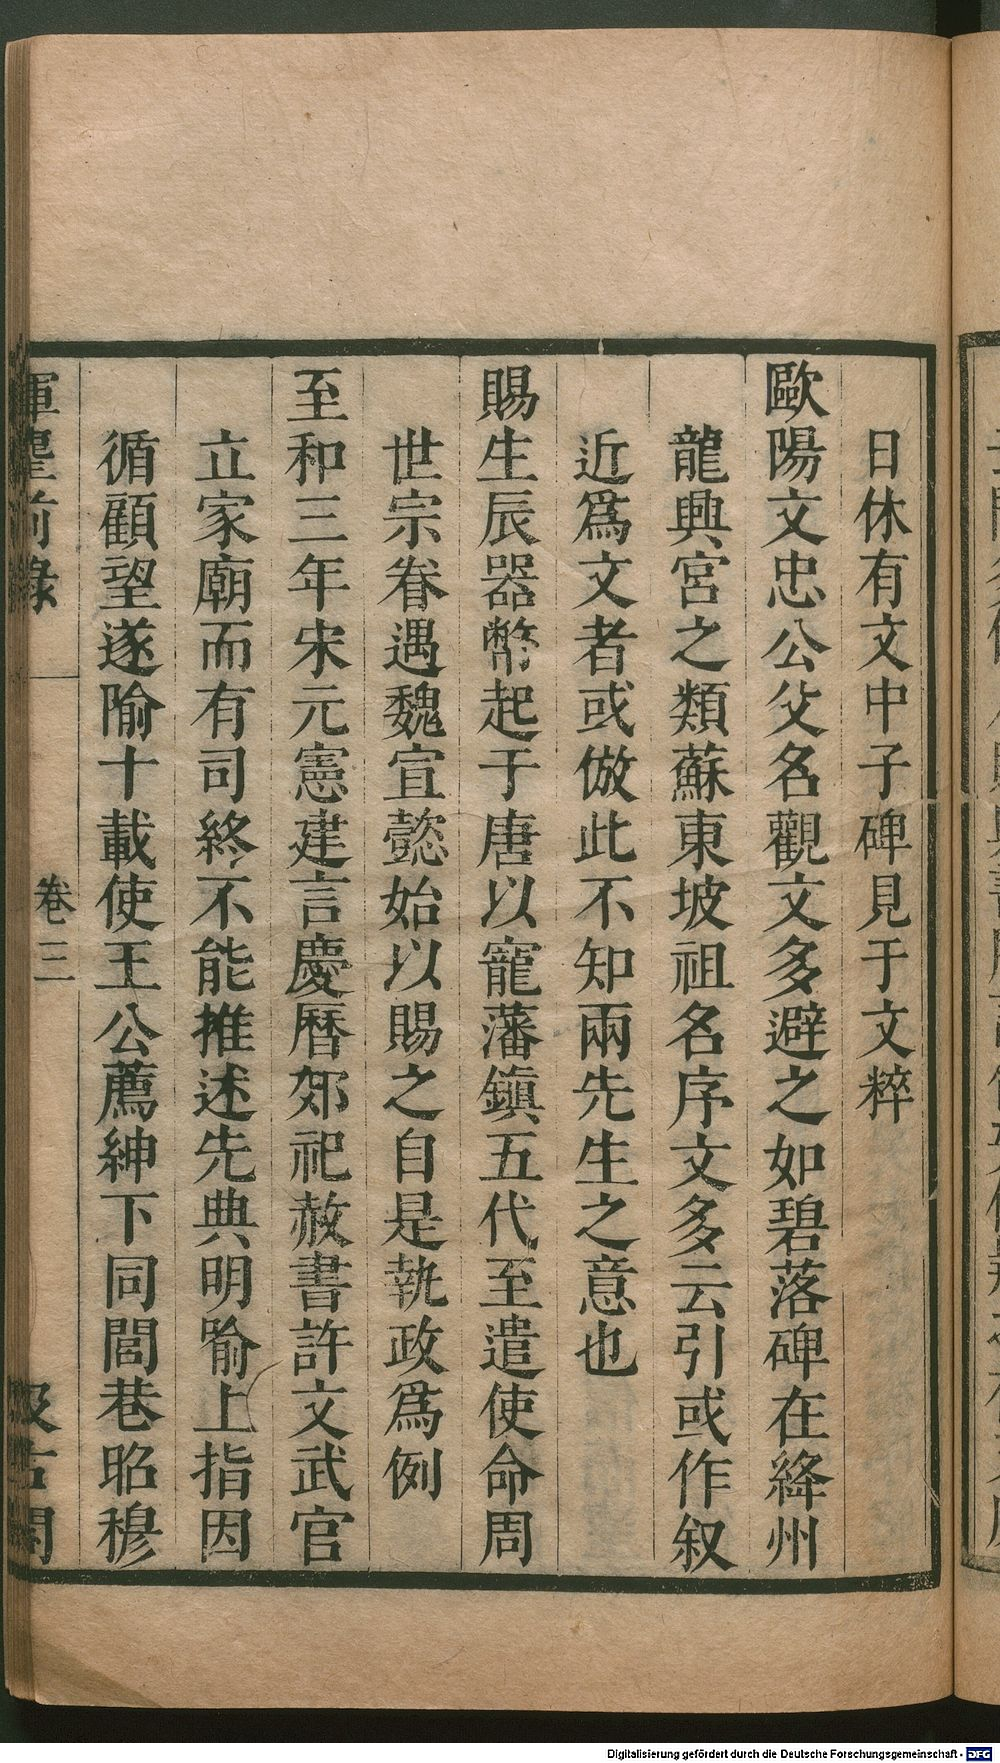 日休有文中子碑見于文粹
歐陽文忠公父名觀文多避之如碧落碑在絳州
龍興宮之類蘇東坡祖名序文多云引或作叙
近爲文者或倣此不知兩先生之意也
賜生辰器幣起于唐以寵藩鎭五代至遣使命周
世宗眷遇魏宣懿始以賜之自是執政爲例
至和三年宋元憲建言慶曆郊祀赦書許文武官
立家廟而有司終不能推述先典明喻上指因
循顧望遂隃十載使王公薦紳下同閭巷昭穆
揮麈前錄
卷三
汲古閣
Digitalisierung gefördert durch die Deutsche Forschungsgemeinschaft - DFG